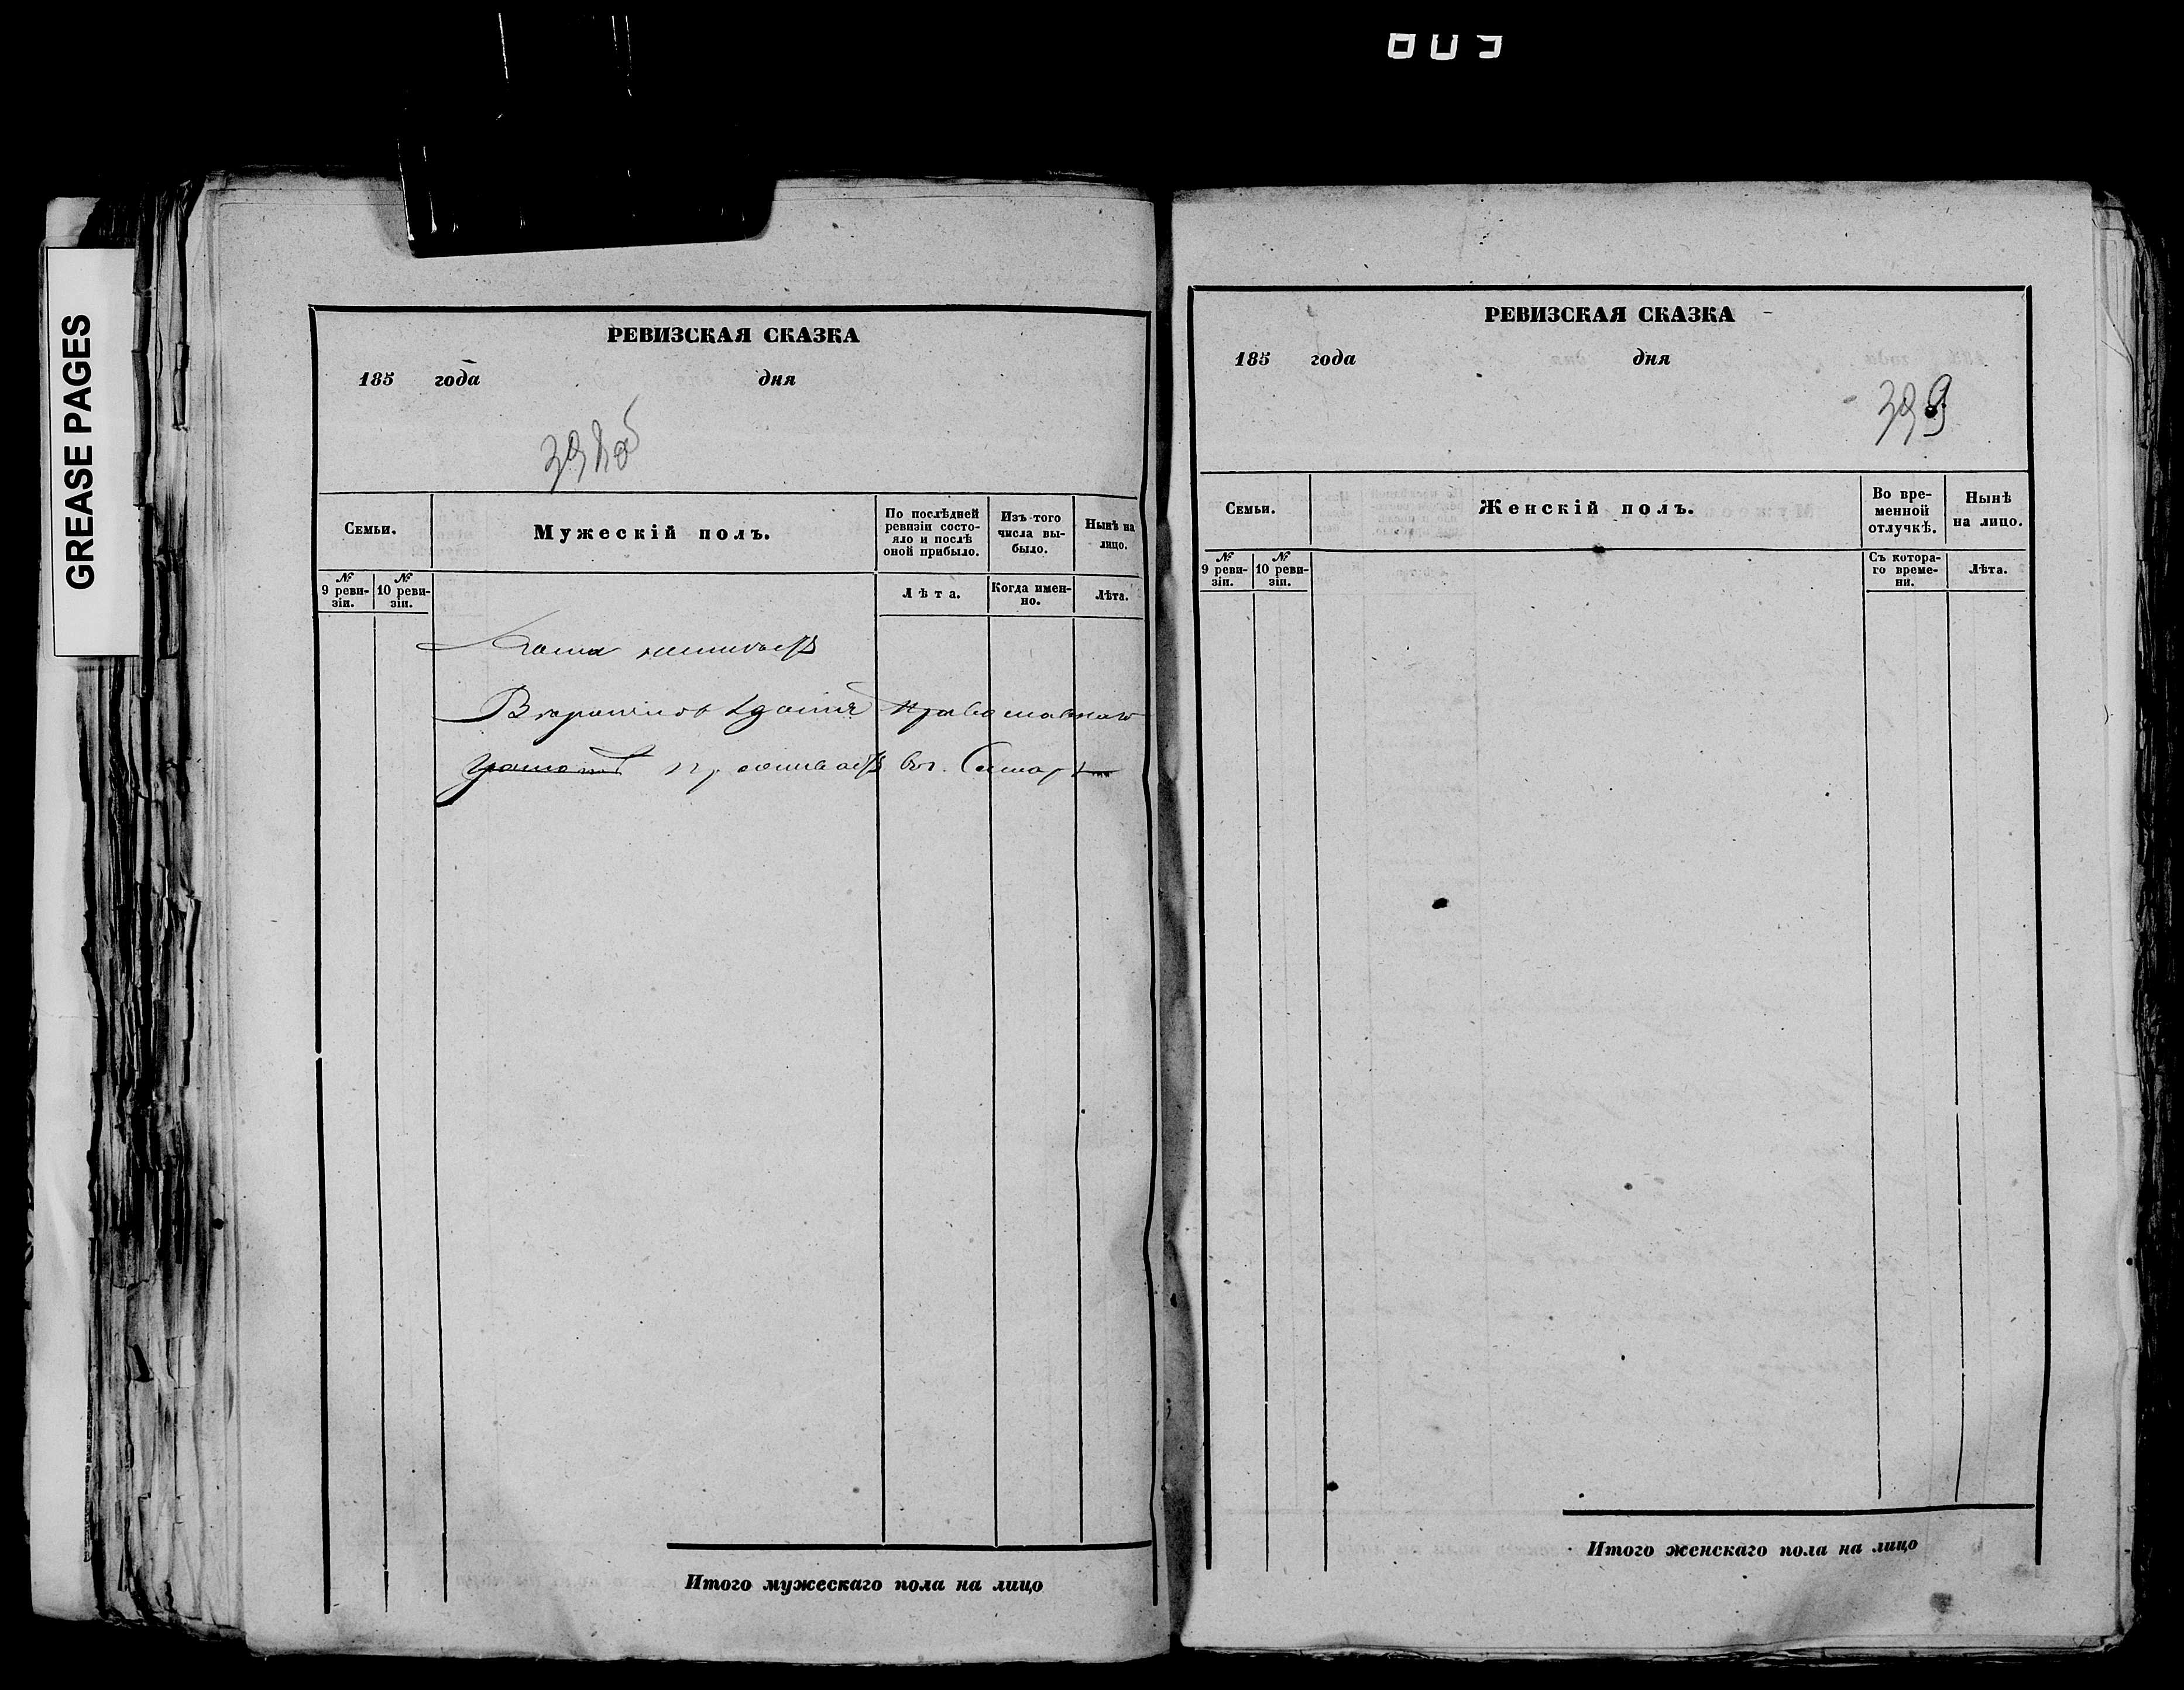 GREASE PAGES
РЕВИЗСКАЯ СКАЗКА
185 года дня
398об
Семьи.
Мужескій полъ.
По послѣдней ревизіи состояло и послѣ оной прибыло.
Изъ того числа выбыло.
Нынѣ на лицо.
№ 9 ревизіи.
№ 10 ревизіи.
Лѣта.
Когда именно.
Лѣта.
православнаго
проживаетъ въ г.
Итого мужескаго пола на лицо
РЕВИЗСКАЯ СКАЗКА
185 года дня
399
Семьи.
Женскій полъ.
Во временной отлучкѣ.
Нынѣ на лицо.
№ 9 ревизіи.
№ 10 ревизіи.
Съ котораго времени.
Лѣта.
Итого женскаго пола на лицо